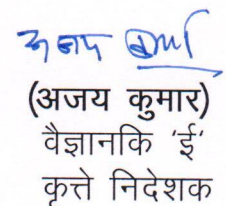 (अजय कुमार)
वैज्ञानकि 'ई'
कृत्ते निदेशक